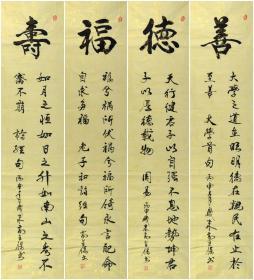 善
大學之道在明明德在親民在止於
至善 大學首句 丙申年
德
天行健君子以自強不息地勢坤君
子以厚德載物 周易 丙申年
福
福兮禍所伏禍兮福所倚永言配命
自求多福 老子和詩經句
壽
如月之恒如日之升如南山之壽不
騫不崩 詩經句 丙申年